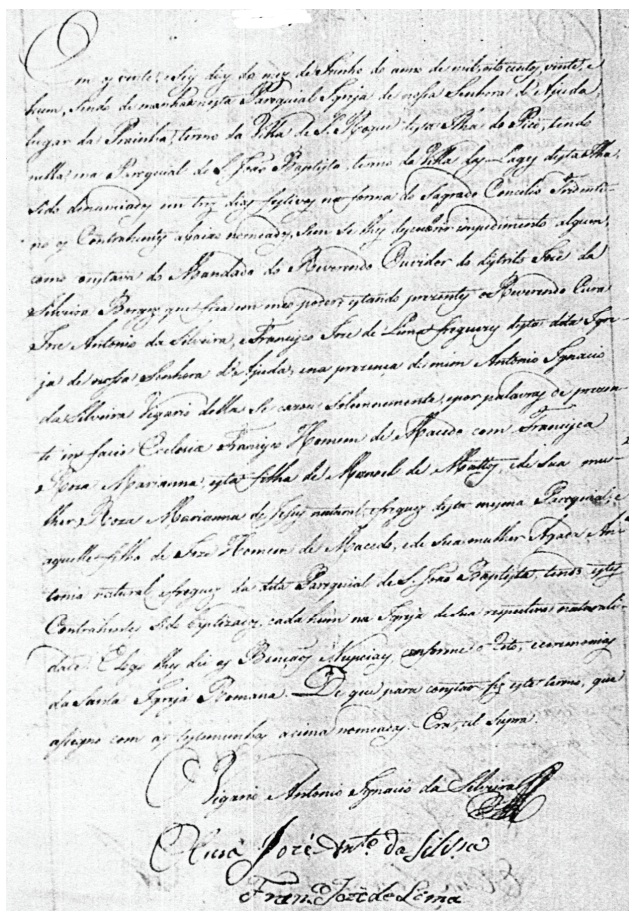 Em os vinte, e seis dias do mez de Junho do anno de mil, oito centos, vinte, e
hum, sendo de manhã nesta Paroquial Igreja de nossa Senhora d'Ajuda,
lugar da Prainha, termo da Villa de S. Roque desta Ilha do Pico, tendo
nella, e na Paroquial de S. João Baptista, termo da Villa das Lages desta Ilha,
sido denunciados em tres dias festivos na forma do Sagrado Concilio Tridenti-
no os Contrahentes abaixo nomeados, sem se lhes descubrir impedimento algum,
como constava do Mandado do Reverendo Ouvidor do distrito José da
Silveira Borges que fica em meo poder; estando prezentes o Reverendo Cura
José Antonio da Silveira, e Francisco José de Lima freguezes desta dita Igre-
ja de nossa Senhora d'Ajuda, e na prezença de mim Antonio Ignacio
da Silveira Vigario della se cazou solemnemente, e por palavras de prezen-
te in facie Ecclesia Francisco Homem de Macedo com Francisca
Roza Marianna, esta filha de Manoel de Mattos, e de sua mu-
lher Roza Marianna de Jesus natural, e freguez desta mesma Paroquial; e
aquelle filho de José Homem de Macedo, e de sua mulher Agada An-
tonia natural, e freguez da dita Paroquial de S. João Baptista, tendo estes
Contrahentes sido baptizados, cada hum na Igreja de sua respectiva naturali-
dade. E logo lhes dei as Bençãos Nupciaes, conforme o Rito, e ceremonias
da Santa Igreja Romana. De que para constar fiz este termo, que
assigno com as testemunhas acima nomeadas. Era, ut supra.
Vigario Antonio Ignacio da Silveira
O Cura José Anto. da Silvra
Franco. José de Lima